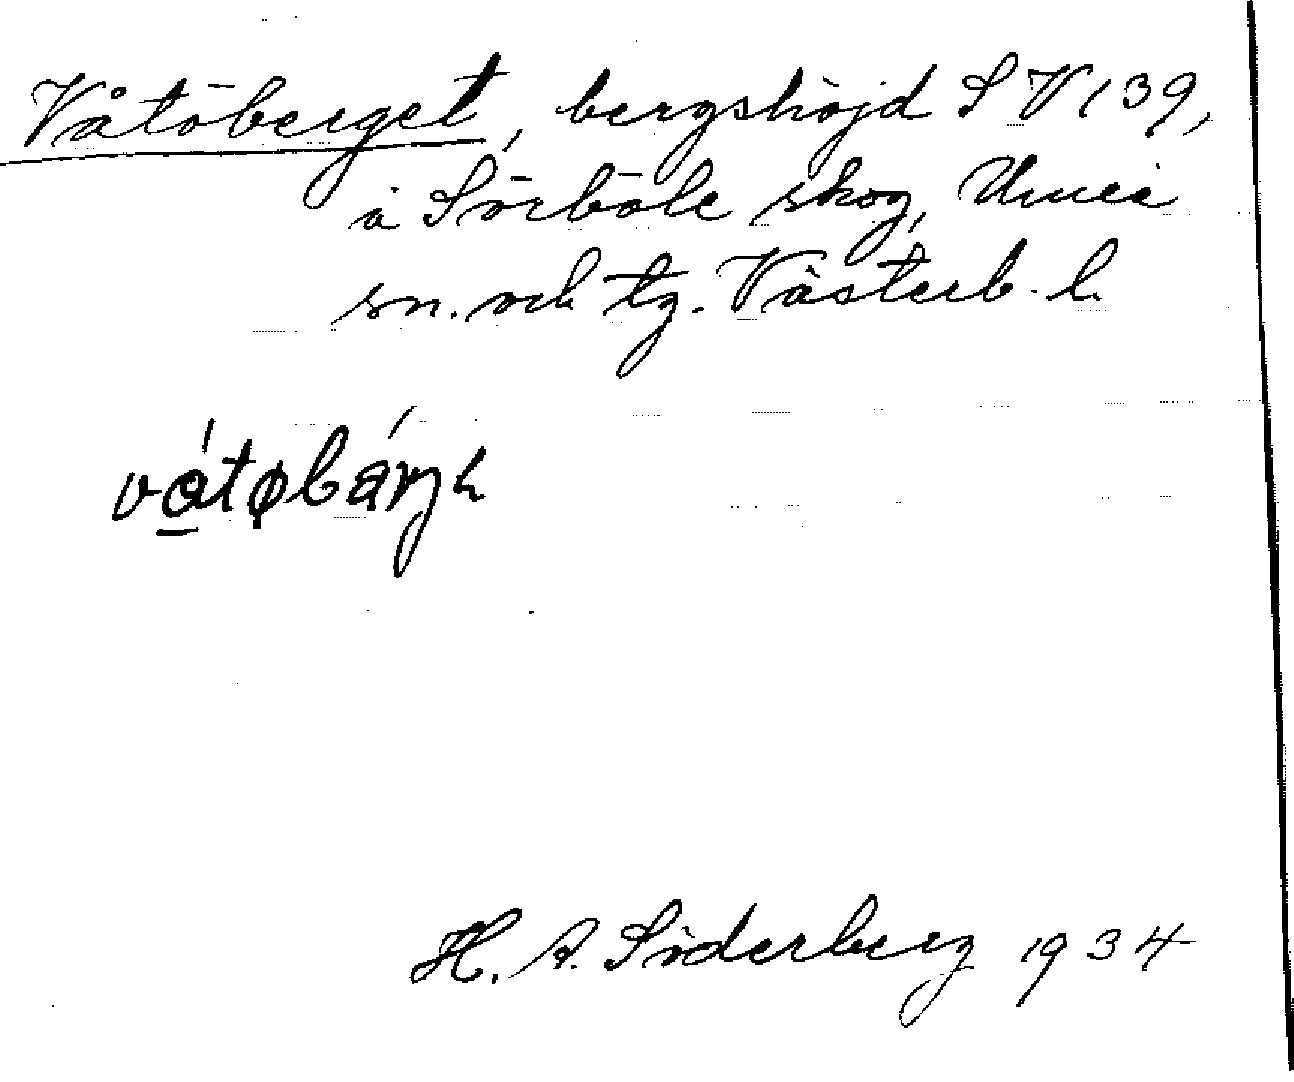 Våtöberget, bergshöjd S V 139,
å Sörböle skog, Umeå
sn. och tg. Västerb. l.
H. A. Söderberg 1934